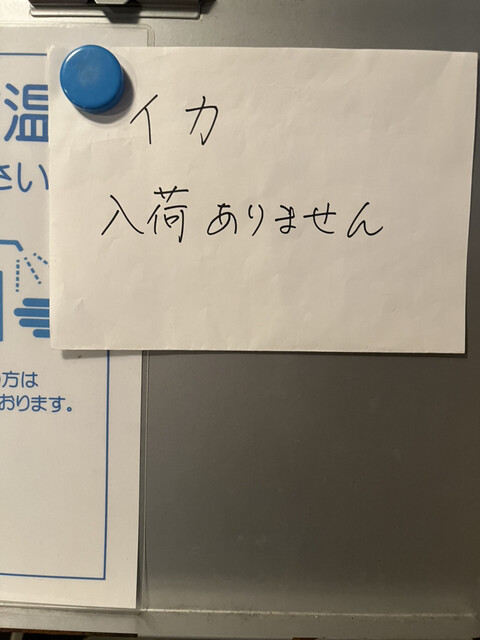 イカ
入荷ありません
温
さい
方は
おります。